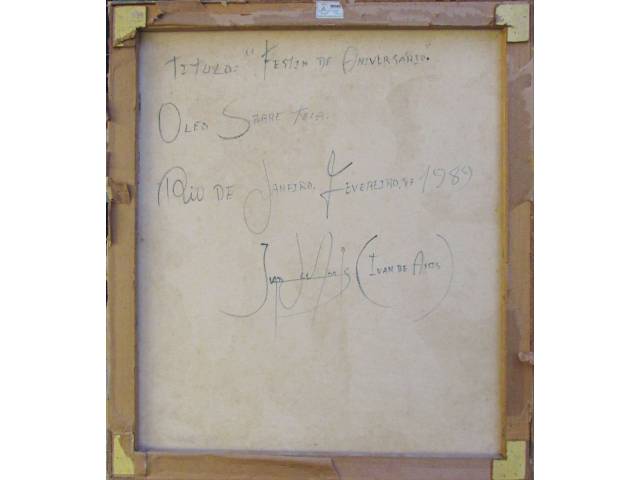 TITULO: "FESTIM DE ANIVERSÁRIO."
OLEO SOBRE TELA.
RIO DE JANEIRO, FEVEREIRO, DE 1989
(IVAN DE ASSIS)